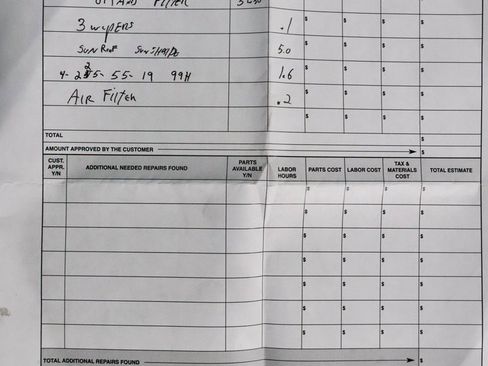 FILTER
3 wipERS .1 $ $ $ $
SUN Roof SUN SHADE 5.0 $ $ $ $
4- 225- 55- 19 99H 1.6 $ $ $ $
AIR FilTER .2 $ $ $ $
$ $ $ $
TOTAL $
AMOUNT APPROVED BY THE CUSTOMER $
CUST. APPR. Y/N ADDITIONAL NEEDED REPAIRS FOUND PARTS AVAILABLE Y/N LABOR HOURS PARTS COST LABOR COST TAX & MATERIALS COST TOTAL ESTIMATE
$ $ $ $
$ $ $ $
$ $ $ $
$ $ $ $
$ $ $ $
$ $ $ $
$ $ $ $
TOTAL ADDITIONAL REPAIRS FOUND $